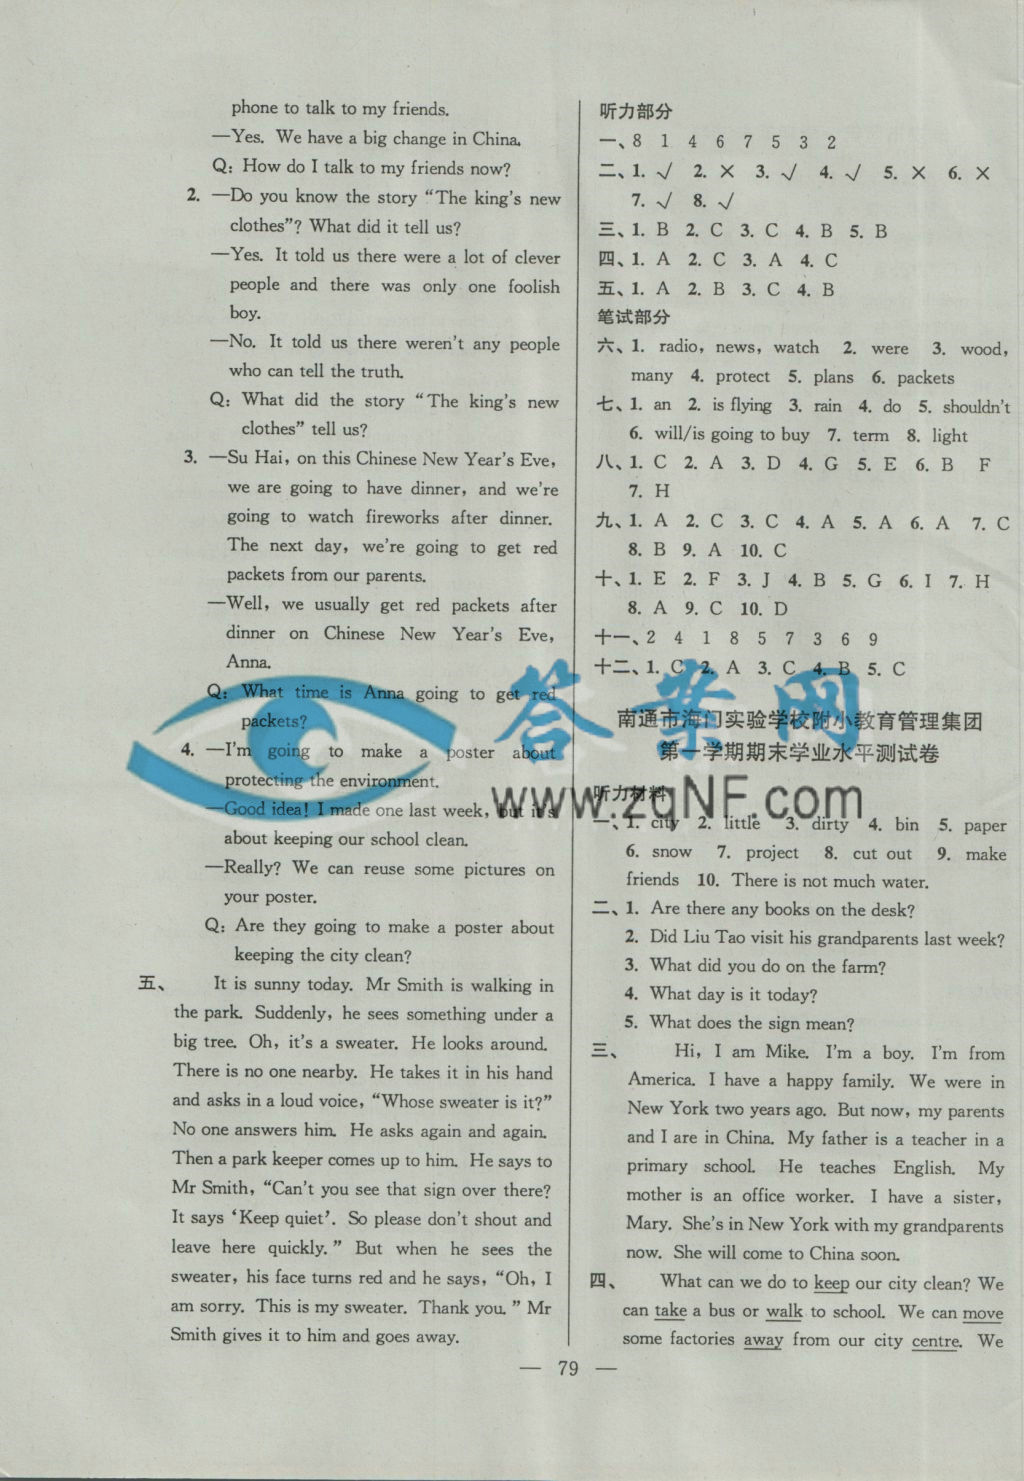 phone to talk to my friends.
—Yes. We have a big change in China.
Q: How do I talk to my friends now?
2. —Do you know the story “The king's new
clothes”? What did it tell us?
—Yes. It told us there were a lot of clever
people and there was only one foolish
boy.
—No. It told us there weren't any people
who can tell the truth.
Q: What did the story “The king's new
clothes” tell us?
3. —Su Hai, on this Chinese New Year's Eve,
we are going to have dinner, and we're
going to watch fireworks after dinner.
The next day, we're going to get red
packets from our parents.
—Well, we usually get red packets after
dinner on Chinese New Year's Eve,
Anna.
Q: What time is Anna going to get red
packets?
4. —I'm going to make a poster about
protecting the environment.
—Good idea! I made one last week, but it's
about keeping our school clean.
—Really? We can reuse some pictures on
your poster.
Q: Are they going to make a poster about
keeping the city clean?
五、 It is sunny today. Mr Smith is walking in
the park. Suddenly, he sees something under a
big tree. Oh, it's a sweater. He looks around.
There is no one nearby. He takes it in his hand
and asks in a loud voice, “Whose sweater is it?”
No one answers him. He asks again and again.
Then a park keeper comes up to him. He says to
Mr Smith, “Can't you see that sign over there?
It says ‘Keep quiet’. So please don't shout and
leave here quickly.” But when he sees the
sweater, his face turns red and he says, “Oh, I
am sorry. This is my sweater. Thank you.” Mr
Smith gives it to him and goes away.
听力部分
一、8 1 4 6 7 5 3 2
二、1. √ 2. × 3. √ 4. √ 5. × 6. ×
7. √ 8. √
三、1. B 2. C 3. C 4. B 5. B
四、1. A 2. C 3. A 4. C
五、1. A 2. B 3. C 4. B
笔试部分
六、1. radio, news, watch 2. were 3. wood,
many 4. protect 5. plans 6. packets
七、1. an 2. is flying 3. rain 4. do 5. shouldn't
6. will/is going to buy 7. term 8. light
八、1. C 2. A 3. D 4. G 5. E 6. B F
7. H
九、1. A 2. C 3. C 4. A 5. A 6. A 7. C
8. B 9. A 10. C
十、1. E 2. F 3. J 4. B 5. G 6. I 7. H
8. A 9. C 10. D
十一、2 4 1 8 5 7 3 6 9
十二、1. C 2. A 3. C 4. B 5. C
答案网
www.zqNF.com
南通市海门实验学校附小教育管理集团
第一学期期末学业水平测试卷
听力材料
一、1. city 2. little 3. dirty 4. bin 5. paper
6. snow 7. project 8. cut out 9. make
friends 10. There is not much water.
二、1. Are there any books on the desk?
2. Did Liu Tao visit his grandparents last week?
3. What did you do on the farm?
4. What day is it today?
5. What does the sign mean?
三、 Hi, I am Mike. I'm a boy. I'm from
America. I have a happy family. We were in
New York two years ago. But now, my parents
and I are in China. My father is a teacher in a
primary school. He teaches English. My
mother is an office worker. I have a sister,
Mary. She's in New York with my grandparents
now. She will come to China soon.
四、 What can we do to keep our city clean? We
can take a bus or walk to school. We can move
some factories away from our city centre. We
— 79 —